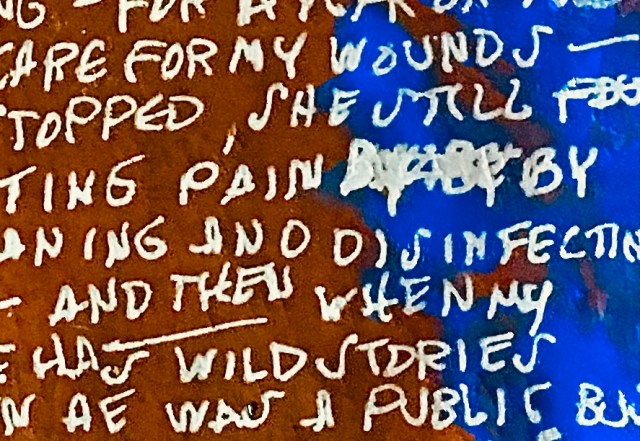 FOR A YEAR OR
CARE FOR MY WOUNDS —
STOPPED, SHE STILL
TING PAIN BY
ANING AND DISINFECTIN
- AND THEN WHEN MY
E HAS WILD STORIES
N HE WAS A PUBLIC BU